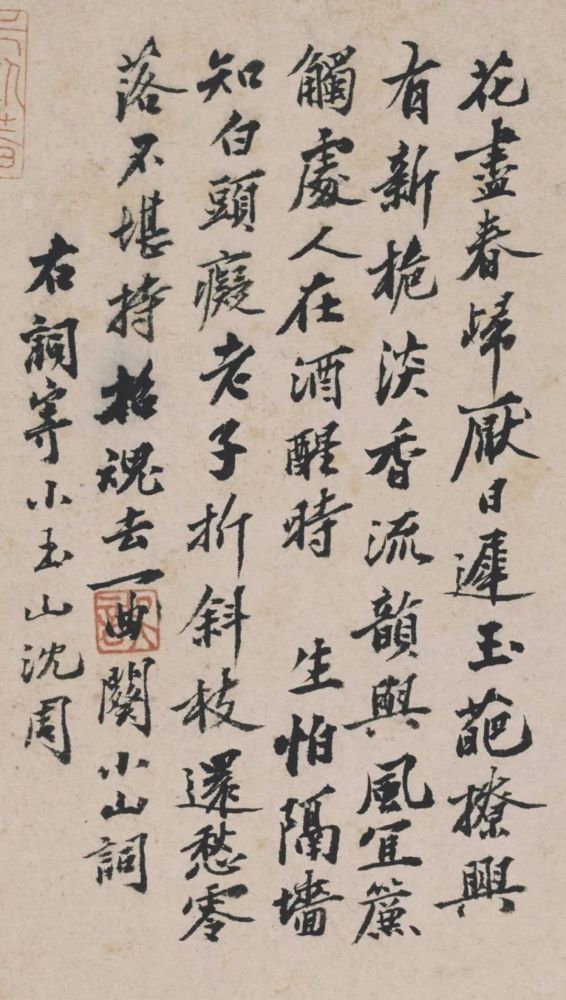 花盡春歸厭日遲玉葩撩興
有新栀淡香流韻與風宜簾
觸處人在酒醒時 生怕隔墻
知白頭癡老子折斜枝還愁零
落不堪持招魂去一曲闋小山詞
右詞寄小玉山沈周